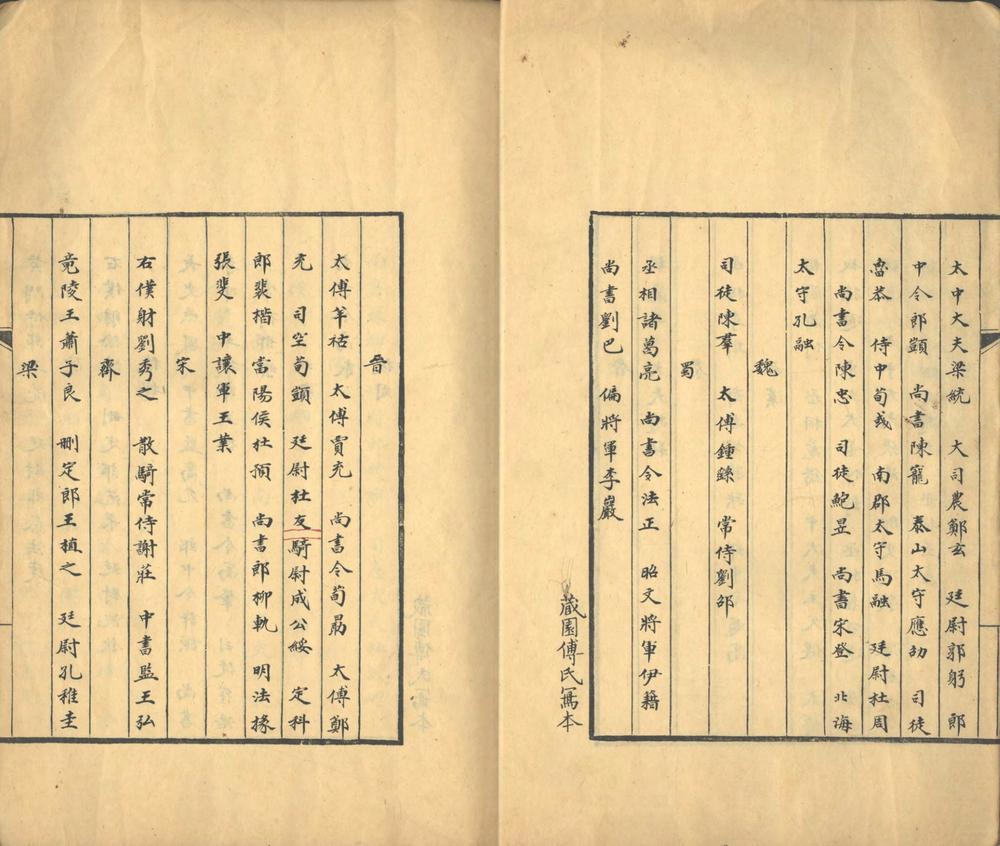 太中大夫梁統　大司農鄭玄　廷尉郭躬　郎
中令郎顗　尚書陳寵　泰山太守應劭　司徒
魯恭　侍中荀彧　南郡太守馬融　廷尉杜周
尚書令陳忠　司徒鮑昱　尚書宋登　北海
太守孔融
魏
司徒陳羣　太傅鍾繇　常侍劉邵
蜀
丞相諸葛亮　尚書令法正　昭文將軍伊籍
尚書劉巴　偏將軍李巖
藏園傅氏寫本
晉
太傅羊祜　太傅賈充　尚書令荀勗　太傅鄭
充　司空荀顗　廷尉杜友　騎尉成公綏　定科
郎裴楷　當陽侯杜預　尚書郎柳軌　明法掾
張斐　中讓軍王業
宋
右僕射劉秀之　散騎常侍謝莊　中書監王弘
齋
竟陵王蕭子良　刪定郎王植之　廷尉孔稚圭
梁